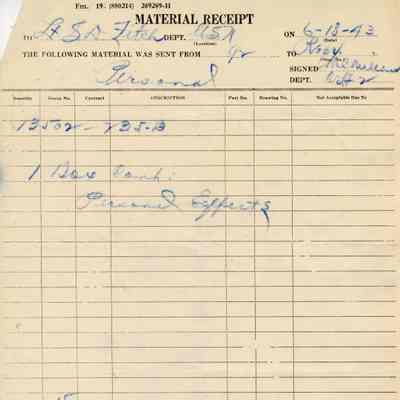 Fm. 19. (880214) 269269-H
MATERIAL RECEIPT
TO Lt S D Fitch DEPT. USN ON 6-18-43
(Location) (Date)
THE FOLLOWING MATERIAL WAS SENT FROM TO
Personal SIGNED
DEPT.
Quantity Group No. Contract DESCRIPTION Part No. Drawing No. Not Acceptable Due To
13502 - 235-B
1 Box
Personal Effects